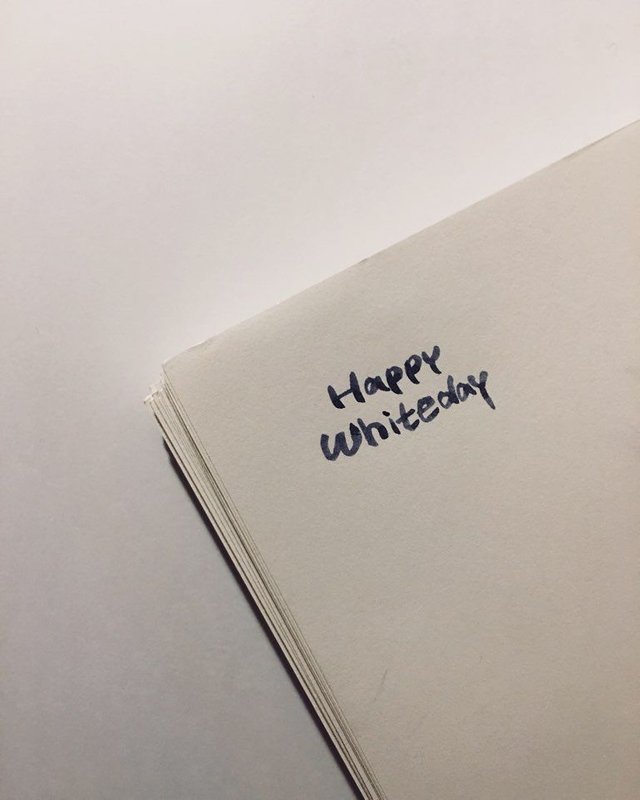 Happy
Whiteday